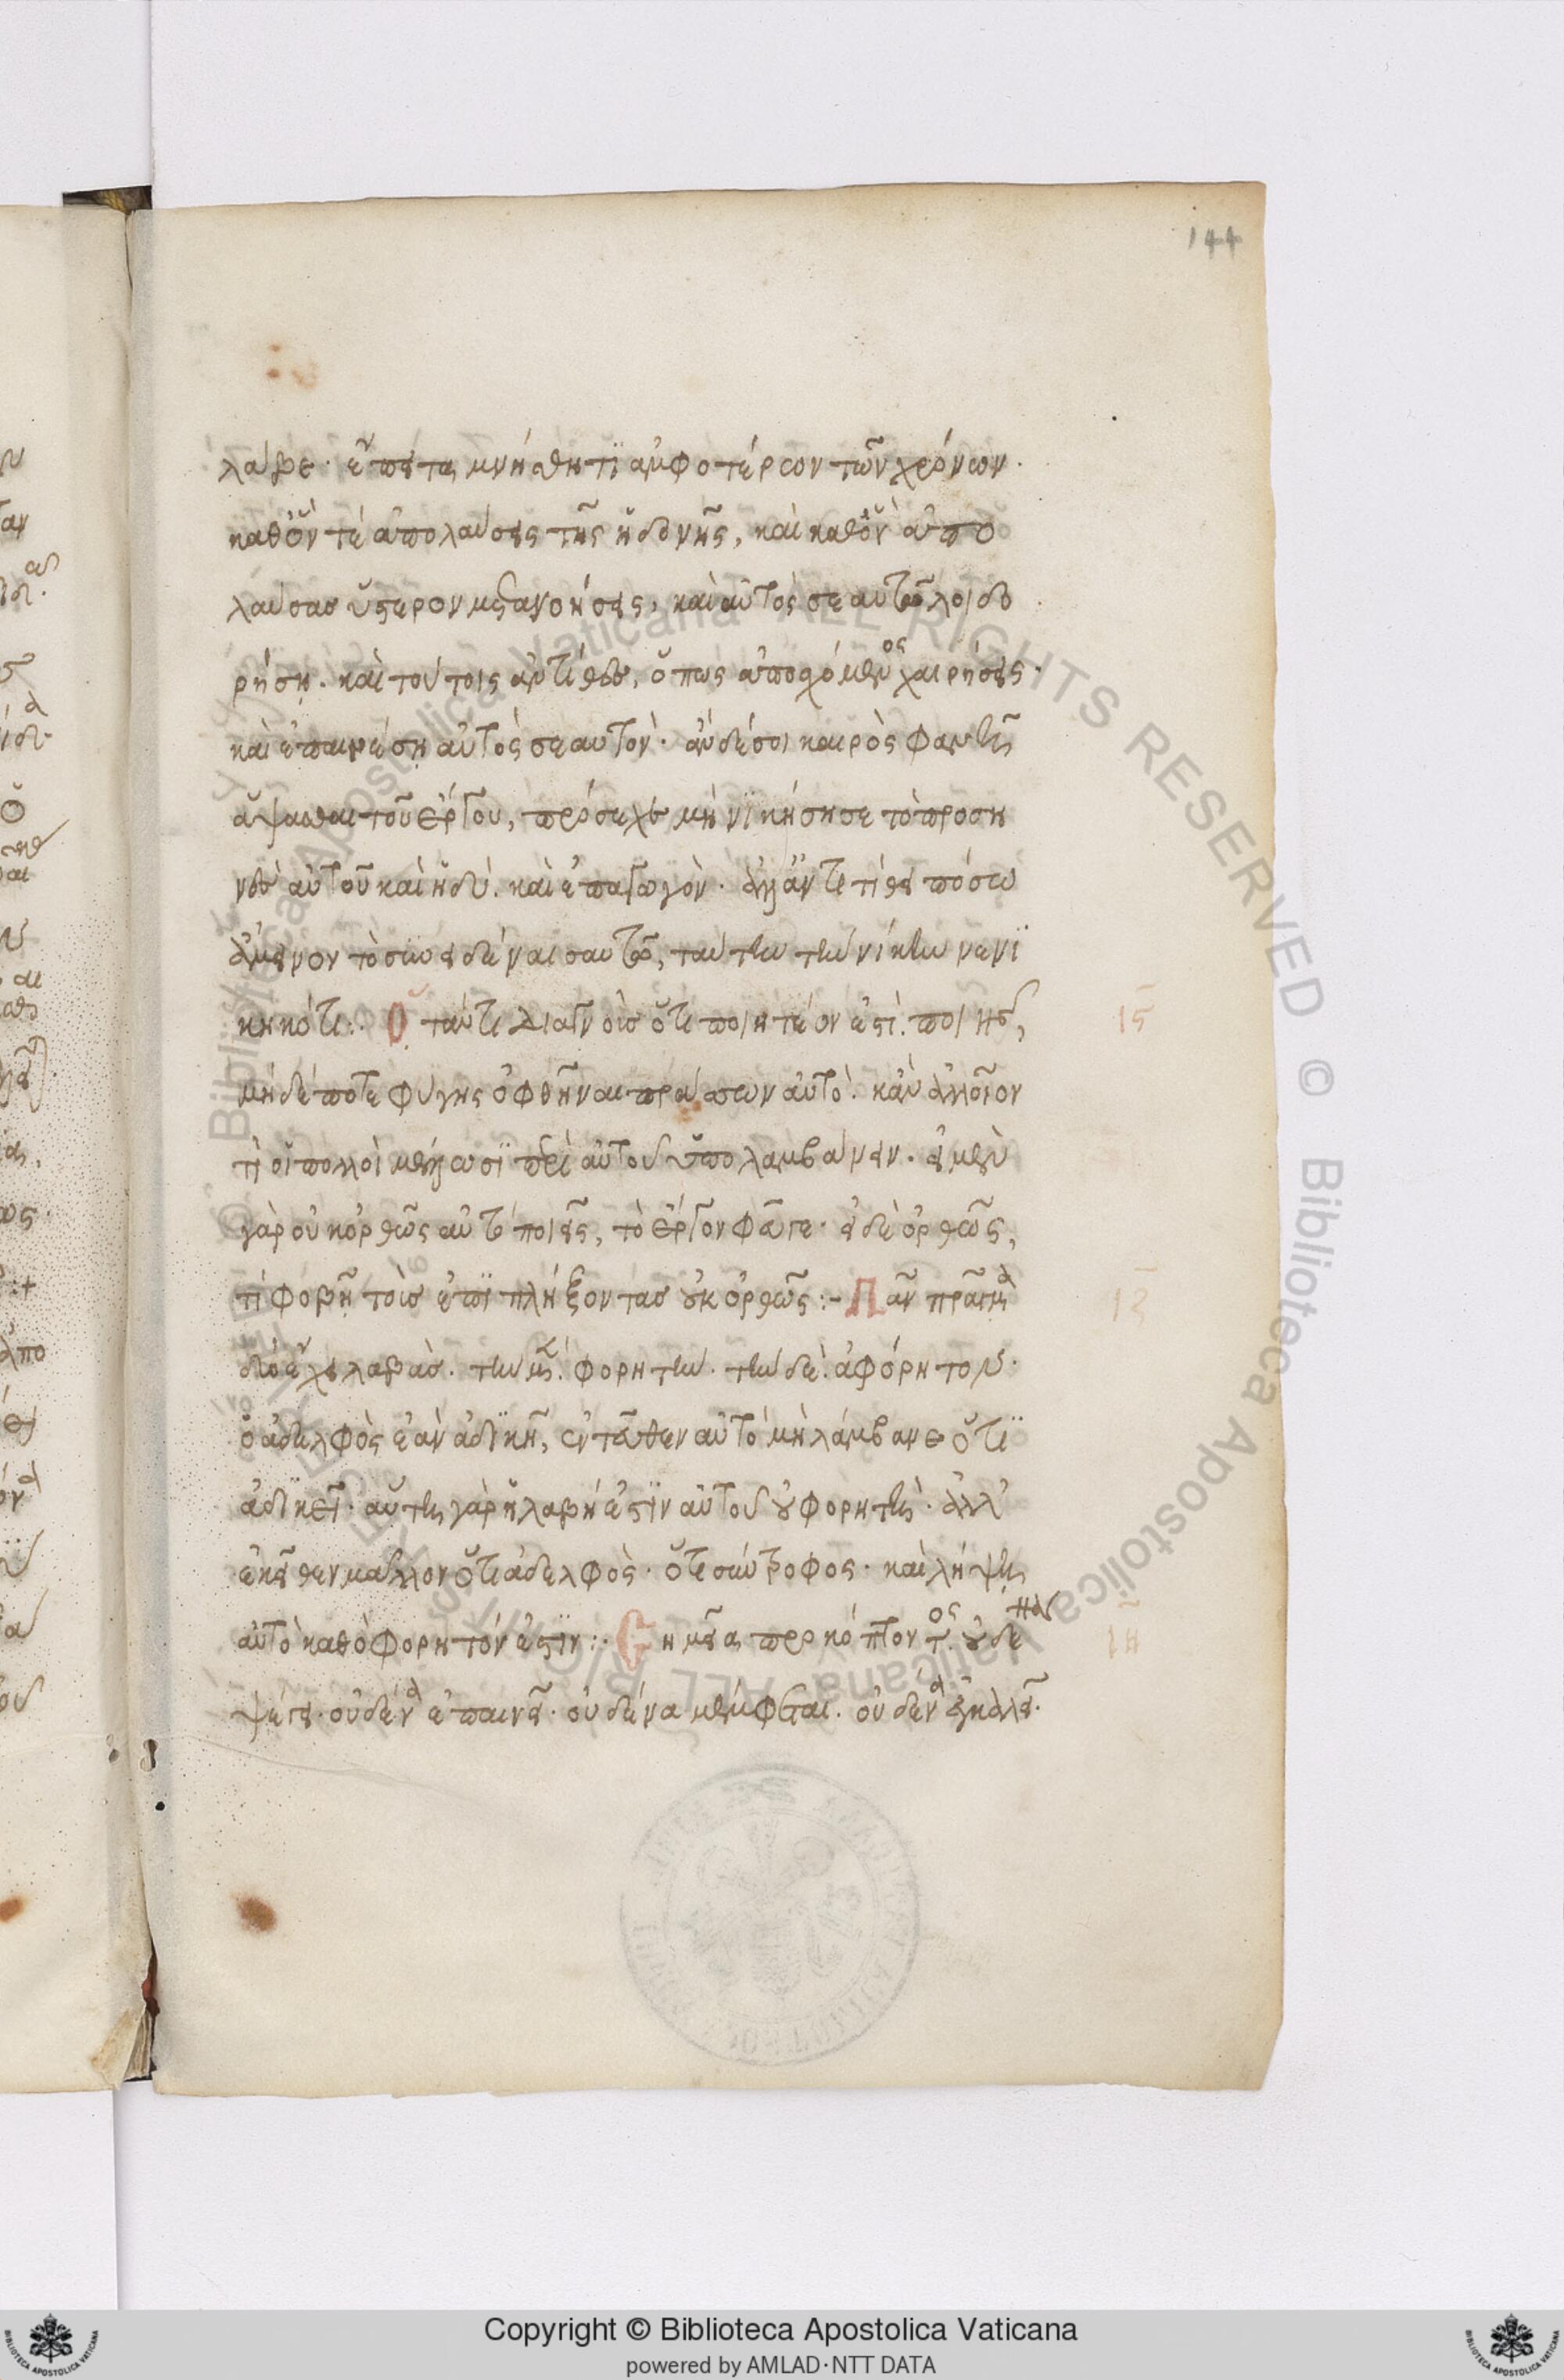 144
λάβε· ἔπειτα μνήσθητϊ ἀμφοτέρων τῶν χρόνων·
καθ᾽ὃν τὲ ἀπολαύσεις τῆς ἡδονῆς, καὶ καθ᾽ὃν ἀπο
λαύσας ὕστερον μετανοήσεις, καὶ αὐτὸς σεαυτῶ λοιδο
ρήση. καὶ τούτοις ἀντίθες, ὅπως ἀποσχόμενος χαιρήσεις·
καὶ ἐπαινέση αὐτὸς σεαυτὸν· ἂν δέ σοι καιρὸς φανῆ
ἅψασθαι τοῦ ἔργου, πρόσεχε μὴ νϊκήση σε τὸ προση
νὲς αὐτοῦ καὶ ἡδύ. καὶ ἐπαγωγὸν· ἀλλ᾽ἀντιτίθει πόσω
ἄμεινον τὸ συνειδέναι σαυτῶ, ταύτην τὴν νίκην νενϊ
κηκότι:· Ὅταν τι διαγνοὺς ὅτι ποιητέον ἐστὶ. ποιῆς,
15
μηδέποτε φύγης ὀφθῆναι πράσσων αὐτὸ. κἂν ἀλλοῖον
τὶ οἱ πολλοὶ μέλλωσϊ περὶ αὐτοῦ ὑπολαμβάνειν. εἰ μὲν
γὰρ οὐκ ὀρθῶς αὐτὸ ποιεῖς, τὸ ἔργον φεῦγε· εἰ δὲ ὀρθῶς,
τί φοβῆ τοὺς ἐπϊπλήξοντας οὐκ ὀρθῶς:- Πᾶν πρᾶγμα
13
δύο ἔχει λαβὰς. τὴν μὲν. φορητὴν. τὴν δὲ. ἀφόρητον·
ὁ ἀδελφὸς ἐὰν ἀδϊκῆ, ἐντεῦθεν αὐτὸ μὴ λάμβανε ὅτϊ
ἀδϊκεῖ· αὕτη γὰρ ἡ λαβή ἐστϊν αὐτοῦ οὐ φορητὴ· ἀλλ᾽
ἐκεῖθεν μᾶλλον ὅτι ἀδελφὸς· ὅτι σύντροφος· καὶ λήψη
αὐτὸ καθ᾽ὃ φορητόν ἐστϊν:· Σημεῖα προκόπτοντος. οὐδένα
ιη
ψέγει· οὐδένα ἐπαινεῖ· οὐδένα μέμφεται· οὐδένα ἐγκαλεῖ·
Copyright © Biblioteca Apostolica Vaticana
powered by AMLAD·NTT DATA